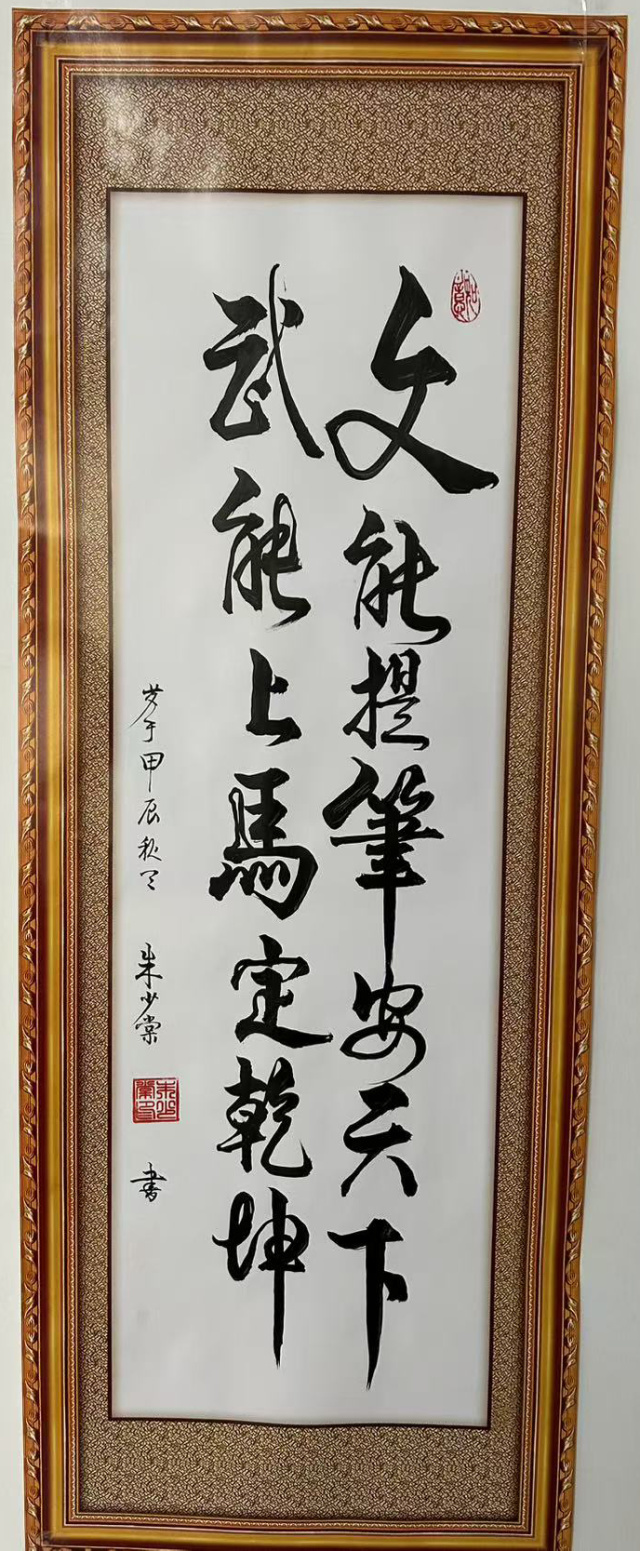 文能提筆安天下
武能上馬定乾坤
岁于甲辰秋月 朱少棠
書